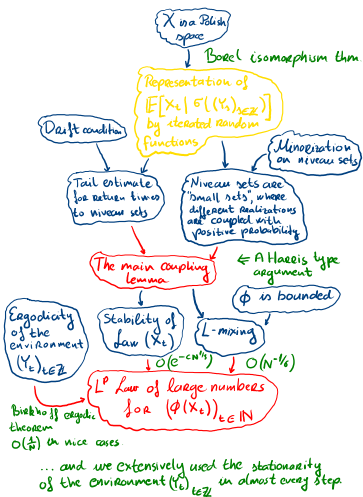 X is a Polish
space
Borel isomorphism thm.
Representation of
E[X_t | σ((Y_s)_{s∈Z})]
by iterated random
functions
Drift condition
Minorization
on niveau sets
Tail estimate
for return times
to niveau sets
Niveau sets are
"small sets", where
different realizations
are coupled with
positive probability
The main coupling
lemma
⇐ A Harris type
argument
Φ is bounded
Ergodicity
of the
environment
(Y_t)_{t∈Z}
Stability of
law (X_t)
L-mixing
O(e^{-cN^{1/3}})
O(N^{-1/6})
L^p Law of large numbers
for (Φ(X_t))_{t∈N}
Birkhoff ergodic
theorem
O(1/N) in nice cases
... and we extensively used the stationarity
of the environment (Y_t)_{t∈Z} in almost every step.